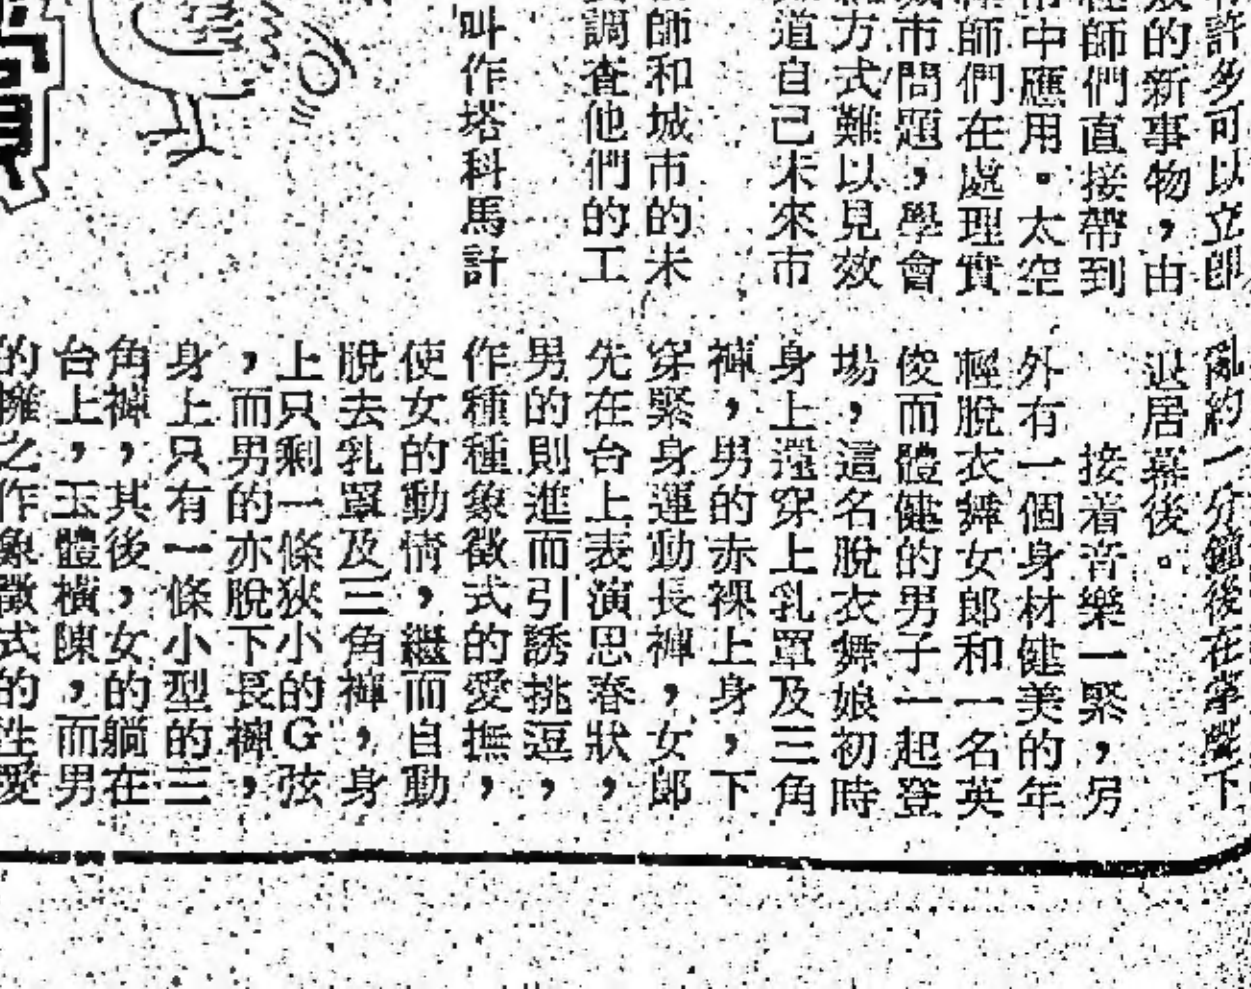 許多可以立即
的新事物，由
師們直接帶到
中應用。太空
師們在處理實
市問題，學會
方式難以見效
道自己未來市
師和城市的未
調查他們的工
叫作塔科馬計
亂約一分鐘後在掌聲下
退居幕後。
接着音樂一緊，另
外有一個身材健美的年
輕脫衣舞女郎和一名英
俊而體健的男子一起登
場，這名脫衣舞娘初時
身上還穿上乳罩及三角
褲，男的赤裸上身，下
穿緊身運動長褲，女郎
先在台上表演思春狀，
男的則進而引誘挑逗，
作種種象徵式的愛撫，
使女的動情，繼而自動
脫去乳罩及三角褲，身
上只剩一條狹小的G弦
，而男的亦脫下長褲，
身上只有一條小型的三
角褲，其後，女的躺在
台上，玉體橫陳，而男
的擁之作象徵式的性愛